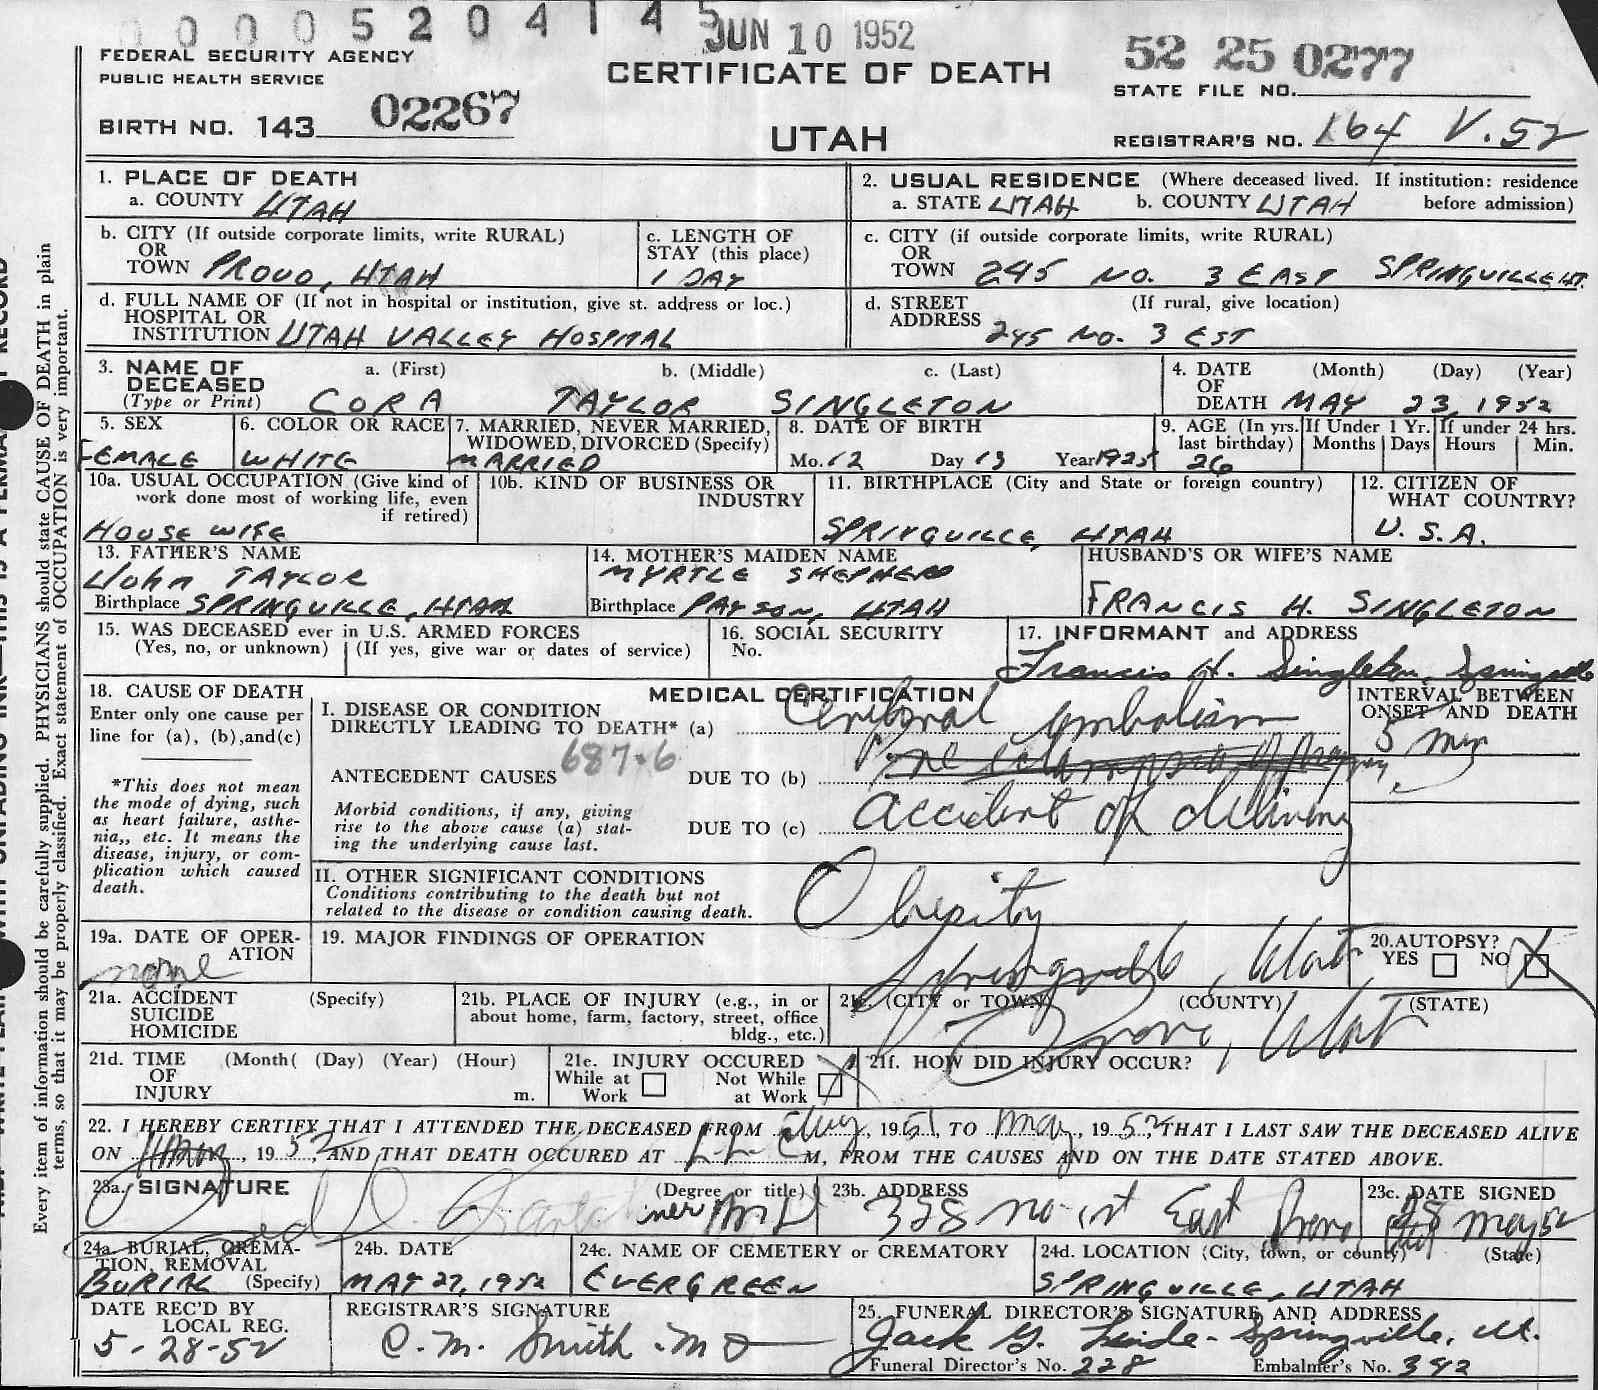 00005204145
JUN 10 1952
FEDERAL SECURITY AGENCY
PUBLIC HEALTH SERVICE
CERTIFICATE OF DEATH
52 25 0277
STATE FILE NO.
BIRTH NO. 143 02267
UTAH
REGISTRAR'S NO. 164 V. 52
1. PLACE OF DEATH
a. COUNTY UTAH
2. USUAL RESIDENCE (Where deceased lived. If institution: residence
a. STATE UTAH b. COUNTY UTAH before admission)
b. CITY (If outside corporate limits, write RURAL)
OR
TOWN PROVO, UTAH
c. LENGTH OF
STAY (this place)
1 DAY
c. CITY (if outside corporate limits, write RURAL)
OR
TOWN 245 NO. 3 EAST SPRINGVILLE UT.
d. FULL NAME OF (If not in hospital or institution, give st. address or loc.)
HOSPITAL OR
INSTITUTION UTAH VALLEY HOSPITAL
d. STREET (If rural, give location)
ADDRESS 245 NO. 3 EST
3. NAME OF a. (First) b. (Middle) c. (Last)
DECEASED
(Type or Print) CORA TAYLOR SINGLETON
4. DATE (Month) (Day) (Year)
OF
DEATH MAY 23, 1952
5. SEX
FEMALE
6. COLOR OR RACE
WHITE
7. MARRIED, NEVER MARRIED,
WIDOWED, DIVORCED (Specify)
MARRIED
8. DATE OF BIRTH
Mo. 12 Day 13 Year 1925
9. AGE (In yrs.
last birthday)
26
If Under 1 Yr.
Months Days
If under 24 hrs.
Hours Min.
10a. USUAL OCCUPATION (Give kind of
work done most of working life, even
if retired)
HOUSE WIFE
10b. KIND OF BUSINESS OR
INDUSTRY
11. BIRTHPLACE (City and State or foreign country)
SPRINGVILLE, UTAH
12. CITIZEN OF
WHAT COUNTRY?
U. S. A.
13. FATHER'S NAME
John TAYLOR
Birthplace SPRINGVILLE, UTAH
14. MOTHER'S MAIDEN NAME
MYRTLE SHEPHERD
Birthplace PAYSON, UTAH
HUSBAND'S OR WIFE'S NAME
FRANCIS H. SINGLETON
15. WAS DECEASED ever in U.S. ARMED FORCES
(Yes, no, or unknown) (If yes, give war or dates of service)
16. SOCIAL SECURITY
No.
17. INFORMANT and ADDRESS
Francis H. Singleton, Springville
18. CAUSE OF DEATH
Enter only one cause per
line for (a), (b),and(c)
*This does not mean
the mode of dying, such
as heart failure, asthe-
nia,, etc. It means the
disease, injury, or com-
plication which caused
death.
MEDICAL CERTIFICATION
I. DISEASE OR CONDITION
DIRECTLY LEADING TO DEATH* (a) Cerebral embolism
INTERVAL BETWEEN
ONSET AND DEATH
5 min
687.6
ANTECEDENT CAUSES DUE TO (b)
Morbid conditions, if any, giving
rise to the above cause (a) stat-
ing the underlying cause last.
DUE TO (c) accident of delivery
II. OTHER SIGNIFICANT CONDITIONS
Conditions contributing to the death but not
related to the disease or condition causing death.
Obesity
19a. DATE OF OPER-
ATION
none
19. MAJOR FINDINGS OF OPERATION
Springville, Utah
20. AUTOPSY?
YES NO X
21a. ACCIDENT (Specify)
SUICIDE
HOMICIDE
21b. PLACE OF INJURY (e.g., in or
about home, farm, factory, street, office
bldg., etc.)
21c. (CITY or TOWN) (COUNTY) (STATE)
Provo, Utah
21d. TIME (Month( (Day) (Year) (Hour)
OF
INJURY m.
21e. INJURY OCCURED
While at Work
Not While at Work X
21f. HOW DID INJURY OCCUR?
22. I HEREBY CERTIFY THAT I ATTENDED THE DECEASED FROM , 1951, TO May, 1952, THAT I LAST SAW THE DECEASED ALIVE
ON , 1952, AND THAT DEATH OCCURED AT M, FROM THE CAUSES AND ON THE DATE STATED ABOVE.
23a. SIGNATURE (Degree or title)
MD
23b. ADDRESS
328 no 1st East Provo
23c. DATE SIGNED
28 May 52
24a. BURIAL, CREMA-
TION, REMOVAL
BURIAL (Specify)
24b. DATE
MAY 27, 1952
24c. NAME OF CEMETERY or CREMATORY
EVERGREEN
24d. LOCATION (City, town, or county) (State)
SPRINGVILLE, UTAH
DATE REC'D BY
LOCAL REG.
5-28-52
REGISTRAR'S SIGNATURE
C. M. Smith. MD
25. FUNERAL DIRECTOR'S SIGNATURE AND ADDRESS
Jack G. - Springville, Ut.
Funeral Director's No. 228 Embalmer's No. 392
Every item of information should be carefully supplied. PHYSICIANS should state CAUSE OF DEATH in plain
terms, so that it may be properly classified. Exact statement of OCCUPATION is very important.